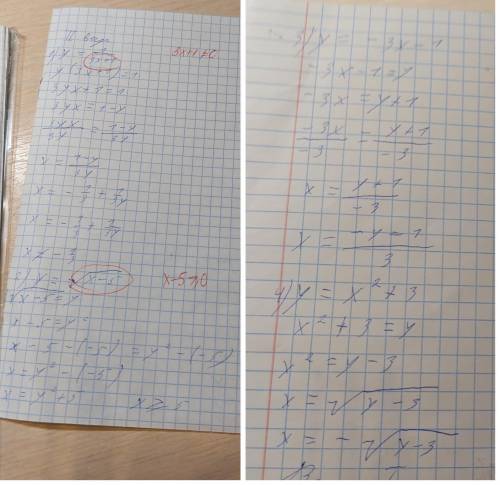 II вар
1) y = 1/(3x+1)
3x+1≠0
y(3x+1) = 1
3yx+1 = 1
3yx = 1-y
3yx/3y = 1-y/3y
x = 1-y/3y
x = -1/3 + 1/3y
x = -1/3 + 1/3y
x ≠ -1/3
2) y = √x-5
x-5≥0
√x-5 = y
x-5 = y²
x - 5 - (-5) = y² - (-5)
x = y² - (-5)
x = y² + 5
x ≥ 5
3) y = -3x-1
-3x-1=y
-3x = y+1
-3x/-3 = y+1/-3
x = y+1/-3
x = -y-1/3
4) y = x²+3
x²+3 = y
x² = y-3
x = √y-3
x = -√y-3